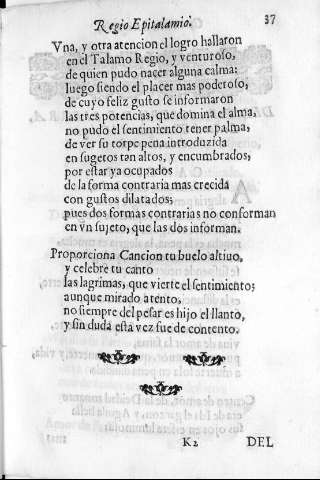 Regio Epitalamio. 37
Vna, y otra atencion el logro hallaron
en el Talamo Regio, y venturoso,
de quien pudo nacer alguna calma;
luego siendo el placer mas poderoso,
de cuyo feliz gusto se informaron
las tres potencias, que domina el alma,
no pudo el sentimiento tener palma,
de ver su torpe pena introduzida
en sugetos tan altos, y encumbrados,
por estar ya ocupados
de la forma contraria mas crecida
con gustos dilatados;
pues dos formas contrarias no conforman
en vn sujeto, que las dos informan.
Proporciona Cancion tu buelo altiuo,
y celebre tu canto
las lagrimas, que vierte el sentimiento;
aunque mirado atento,
no siempre del pesar es hijo el llanto,
y sin duda esta vez fue de contento.
K2 DEL